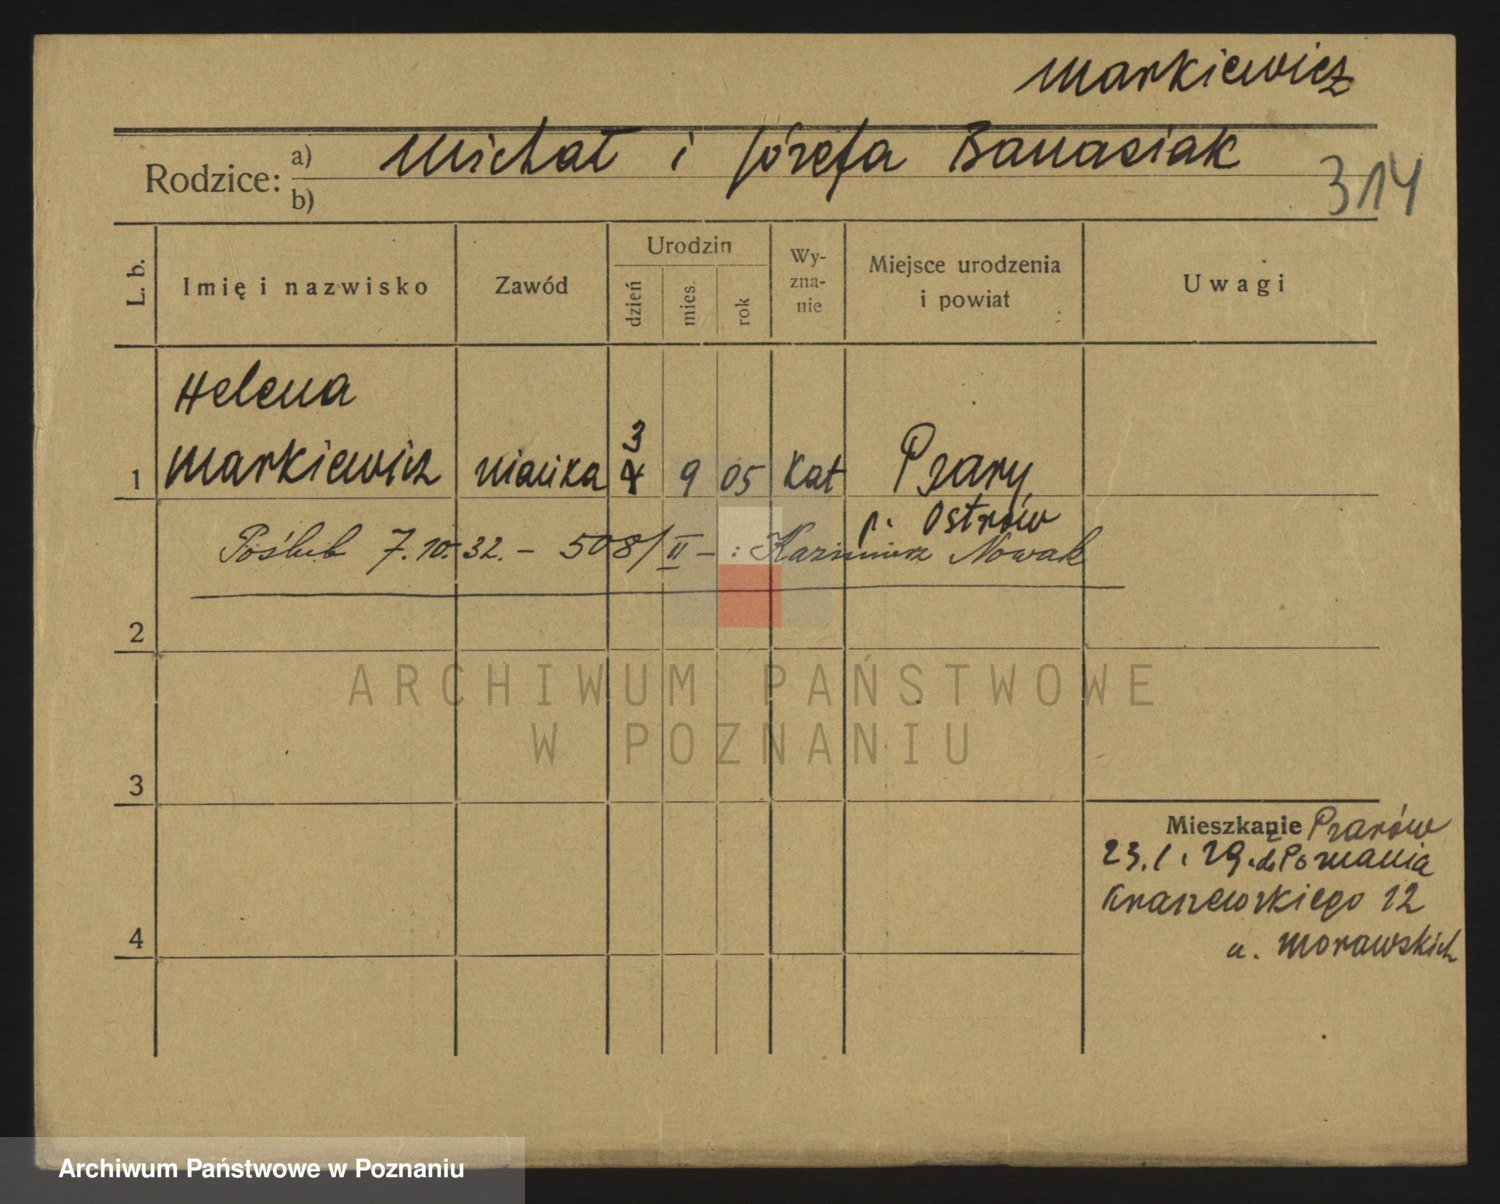 Markiewicz
Rodzice: a) Michał i Józefa Banasiak
b)
314
L. b.
Imię i nazwisko
Zawód
Urodzin
dzień
mies.
rok
Wy-
zna-
nie
Miejsce urodzenia
i powiat
Uwagi
Helena
1 Markiewicz niańka 3 4 9 05 Kat Psary
p. Ostrów
Poślub 7.10.32. – 508/II – : Kazimierz Nowak
2
3
4
Mieszkanie Psarów
23.1.29. do Poznania
Kraszewskiego 12
u. Morawskich
ARCHIWUM PAŃSTWOWE
W POZNANIU
Archiwum Państwowe w Poznaniu